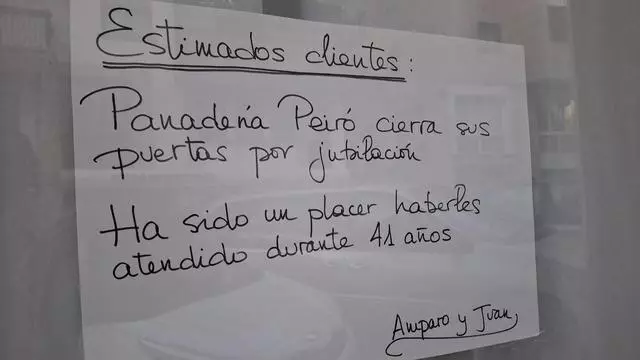 Estimados clientes:
Panadería Peiró cierra sus
puertas por jubilación
Ha sido un placer haberles
atendido durante 41 años
Amparo y Juan